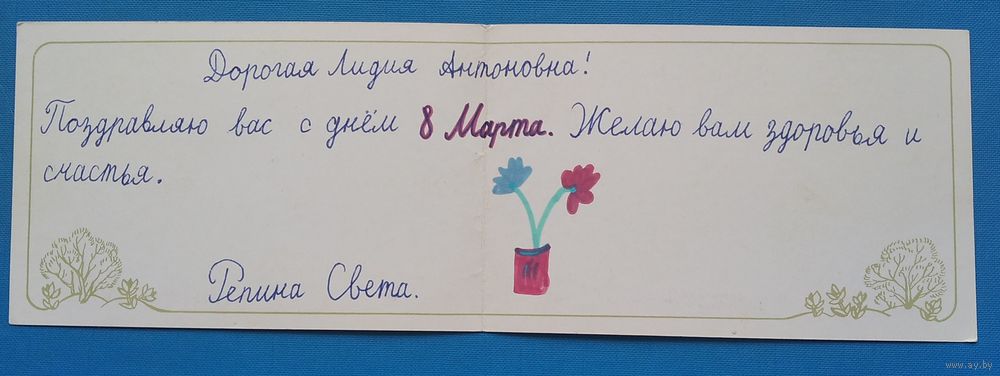 Дорогая Лидия Антоновна!
Поздравляю вас с днём 8 Марта. Желаю вам здоровья и
счастья.
Репина Света.
www.ay.by